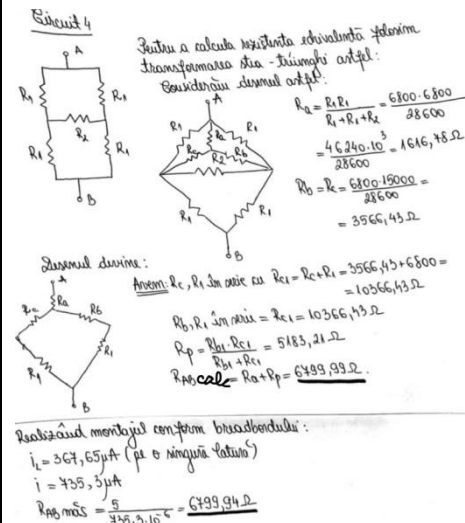 Circuit 4
Pentru a calcula rezistența echivalentă folosim
transformarea stea - triunghi astfel:
Considerăm desenul astfel:
A
R1
R1
R2
R1
R1
B
A
R1
R1
Ra
Rc
Rb
R2
R1
R1
B
Ra = R1R1 / R1+R1+R2 = 6800·6800 / 28600
= 46240·10³ / 28600 = 1616,78 Ω
Rb = Rc = 6800·15000 / 28600 =
= 3566,43 Ω
Desenul devine:
A
Ra
Rc
Rb
R1
R1
B
Avem: Rc, R1 în serie cu Rc1 = Rc+R1 = 3566,43+6800 =
= 10366,43 Ω
Rb, R1 în serie = Rc1 = 10366,43 Ω
Rp = Rb1·Rc1 / Rb1+Rc1 = 5183,21 Ω
RAB calc = Ra+Rp = 6799,99 Ω.
Realizând montajul conform breadbordului:
iL = 367,65 μA (pe o singură latură)
i = 735,3 μA
RAB măs = 5 / 735,3·10⁻⁶ = 6799,94 Ω